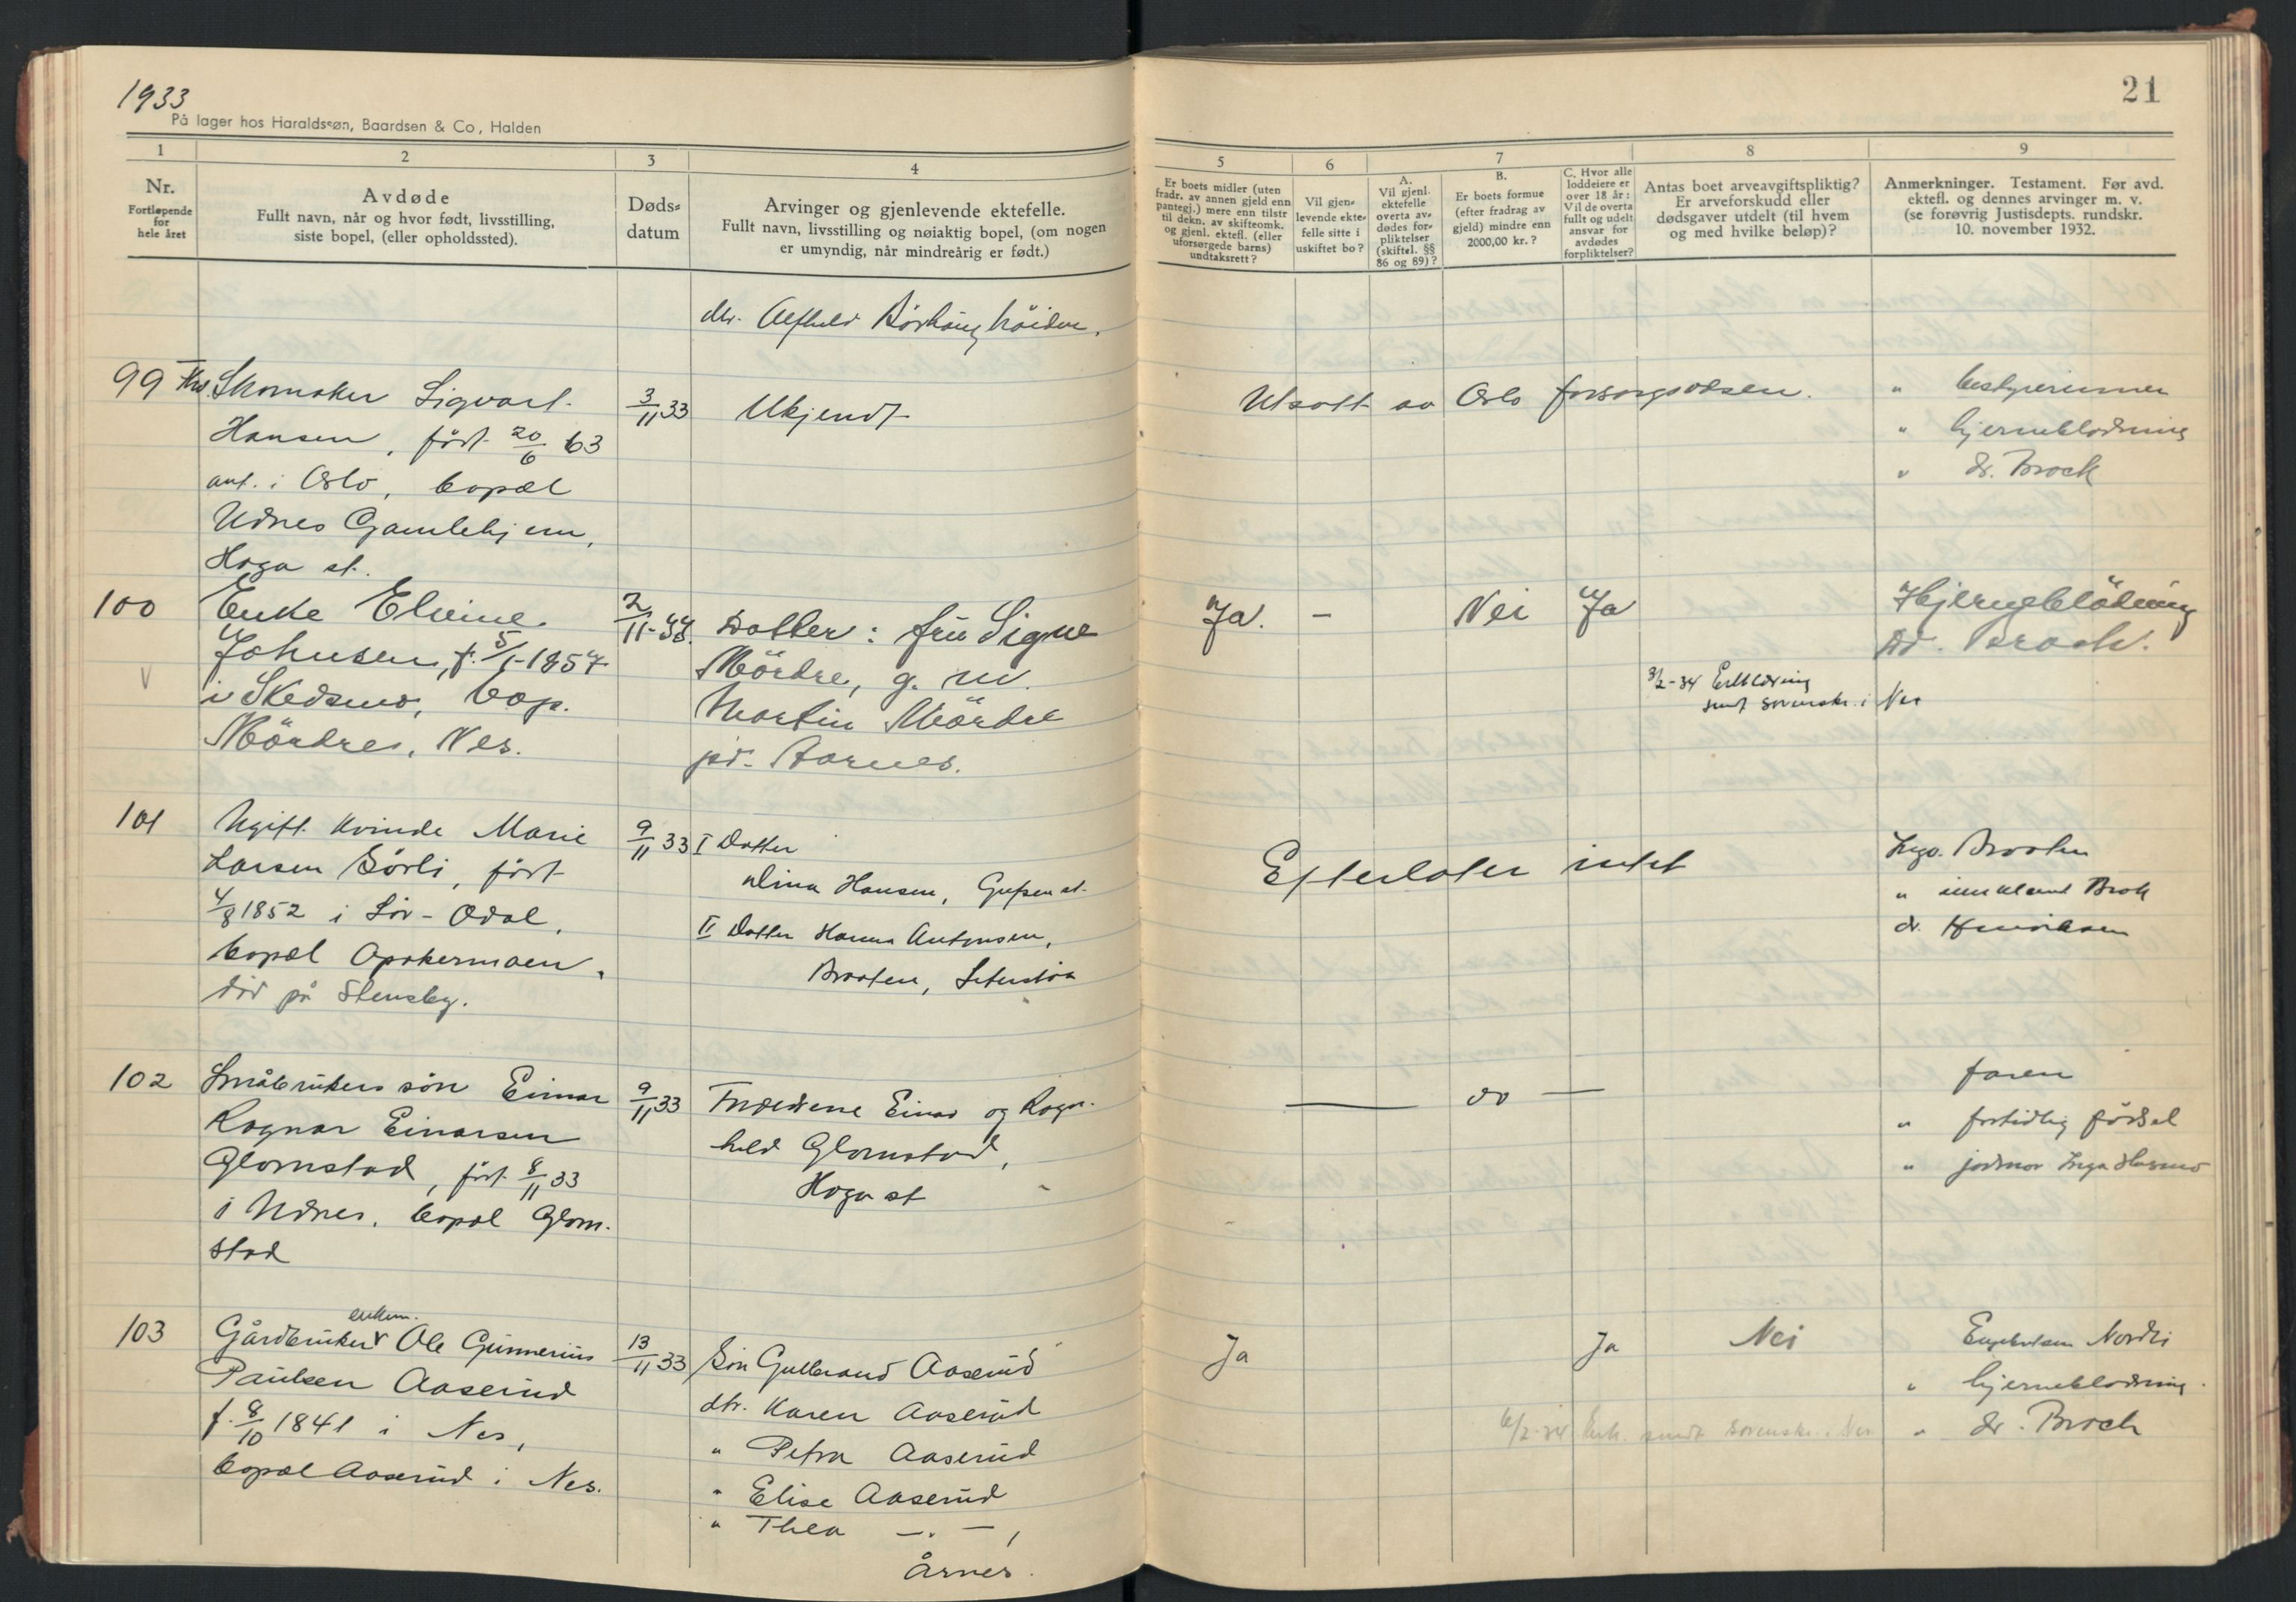 1933
På lager hos Haraldssøn, Baardsen & Co, Halden
21
1
2
3
4
5
6
7
8
9
Nr.
Fortløpende
for
hele året
Avdøde
Fullt navn, når og hvor født, livsstilling,
siste bopel, (eller opholdssted).
Døds-
datum
Arvinger og gjenlevende ektefelle.
Fullt navn, livsstilling og nøiaktig bopel, (om nogen
er umyndig, når mindreårig er født.)
Er boets midler (uten
fradr. av annen gjeld enn
pantegj.) mere enn tilstr
til dekn. av skifteomk.
og gjenl. ektefl. (eller
uforsørgede barns)
undtaksrett?
Vil gjen-
levende ekte-
felle sitte i
uskiftet bo?
A.
Vil gjenl.
ektefelle
overta av-
dødes for-
pliktelser
(skiftel. §§
86 og 89)?
B.
Er boets formue
(efter fradrag av
gjeld) mindre enn
2000,00 kr.?
C. Hvor alle
loddeiere er
over 18 år:
Vil de overta
fullt og udelt
ansvar for
avdødes
forpliktelser?
Antas boet arveavgiftspliktig?
Er arveforskudd eller
dødsgaver utdelt (til hvem
og med hvilke beløp)?
Anmerkninger. Testament. Før avd.
ektefl. og dennes arvinger m. v.
(se forøvrig Justisdepts. rundskr.
10. november 1932.
99
Skomaker Sigvart
Hansen, født 20/6 63
ant. i Oslo, bopæl
Udnes Gamlehjem,
Haga st.
3/11 33
Ukjendt
Utsatt av Oslo forsorgsvæsen.
" bestyrerinnen
" hjerneblødning
" dr. Broch
100
Enke Eline
Johnsen, f. 5/1-1857
i Skedsmo, bop.
Mördre, Nes.
2/11-33.
Datter: frü Signe
Mördre, g. m.
Martin Mördre
pr. Aarnes.
Ja.
-
Nei
Ja
Hjerneblödning
Dr. Broch.
3/2-34 Erklæring
sendt sorenskr. i Nes
101
Ugift kvinde Marie
Larsen Sørli, født
4/8 1852 i Sör-Odal,
bopæl Opakermoen,
död på Stensby.
9/11 33
I Datter
Dina Hansen,
II Datter Hanna Antonsen,
Braaten, Seterstøa
Efterlater intet
Inga Braaten
dr. Henriksen
102
Småbrukers sön Einar
Ragnar Einarsen
Glomstad, født 8/11 33
i Udnes, bopæl Glom-
stad
9/11 33
Forældrene Einar og Ragn-
hild Glomstad,
Haga st
— do —
faren
" fortidlig fødsel
" jordmor Inga
103
enkem.
Gårdbruker v Ole Gunnerius
Paulsen Aaserud
f. 8/10 1841 i Nes,
bopæl Aaserud i Nes.
13/11 33
Sön Gulbrand Aaserud
dtr. Karen Aaserud
" Petra Aaserud
" Elise Aaserud
" Thea —"—,
Årnes.
Ja
Ja
Nei
6/2-34 Erk. sendt sorenskr. i Nes
Engebretsen Nordli
" hjerneblødning.
" dr. Broch